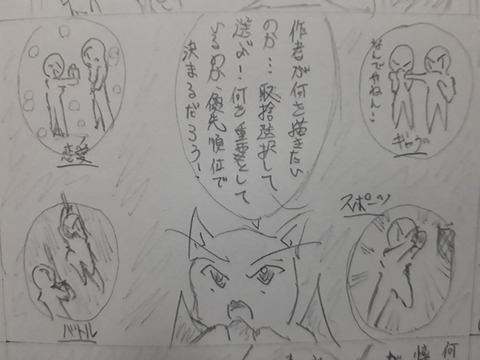 なんでやねん!!
ギャグ
作者が何を描きたい
のか…取捨選択して
選ぶ!何を重要として
いるのか、優先順位で
決まるだろう!
恋愛
スポーツ
バトル
何